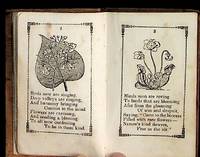 Birds now are singing,
Deep valleys are ringing,
And harmony bringing
Content to the mind
Flowers are
And sending a blessing
To all
To be to them kind
Minds now are roving
To lands that are blooming
Afar from the glooming
Of woe and despair,
Saying, "Come to the bowers
Filled with rare flowers—
Nature's kind
Free as the air."